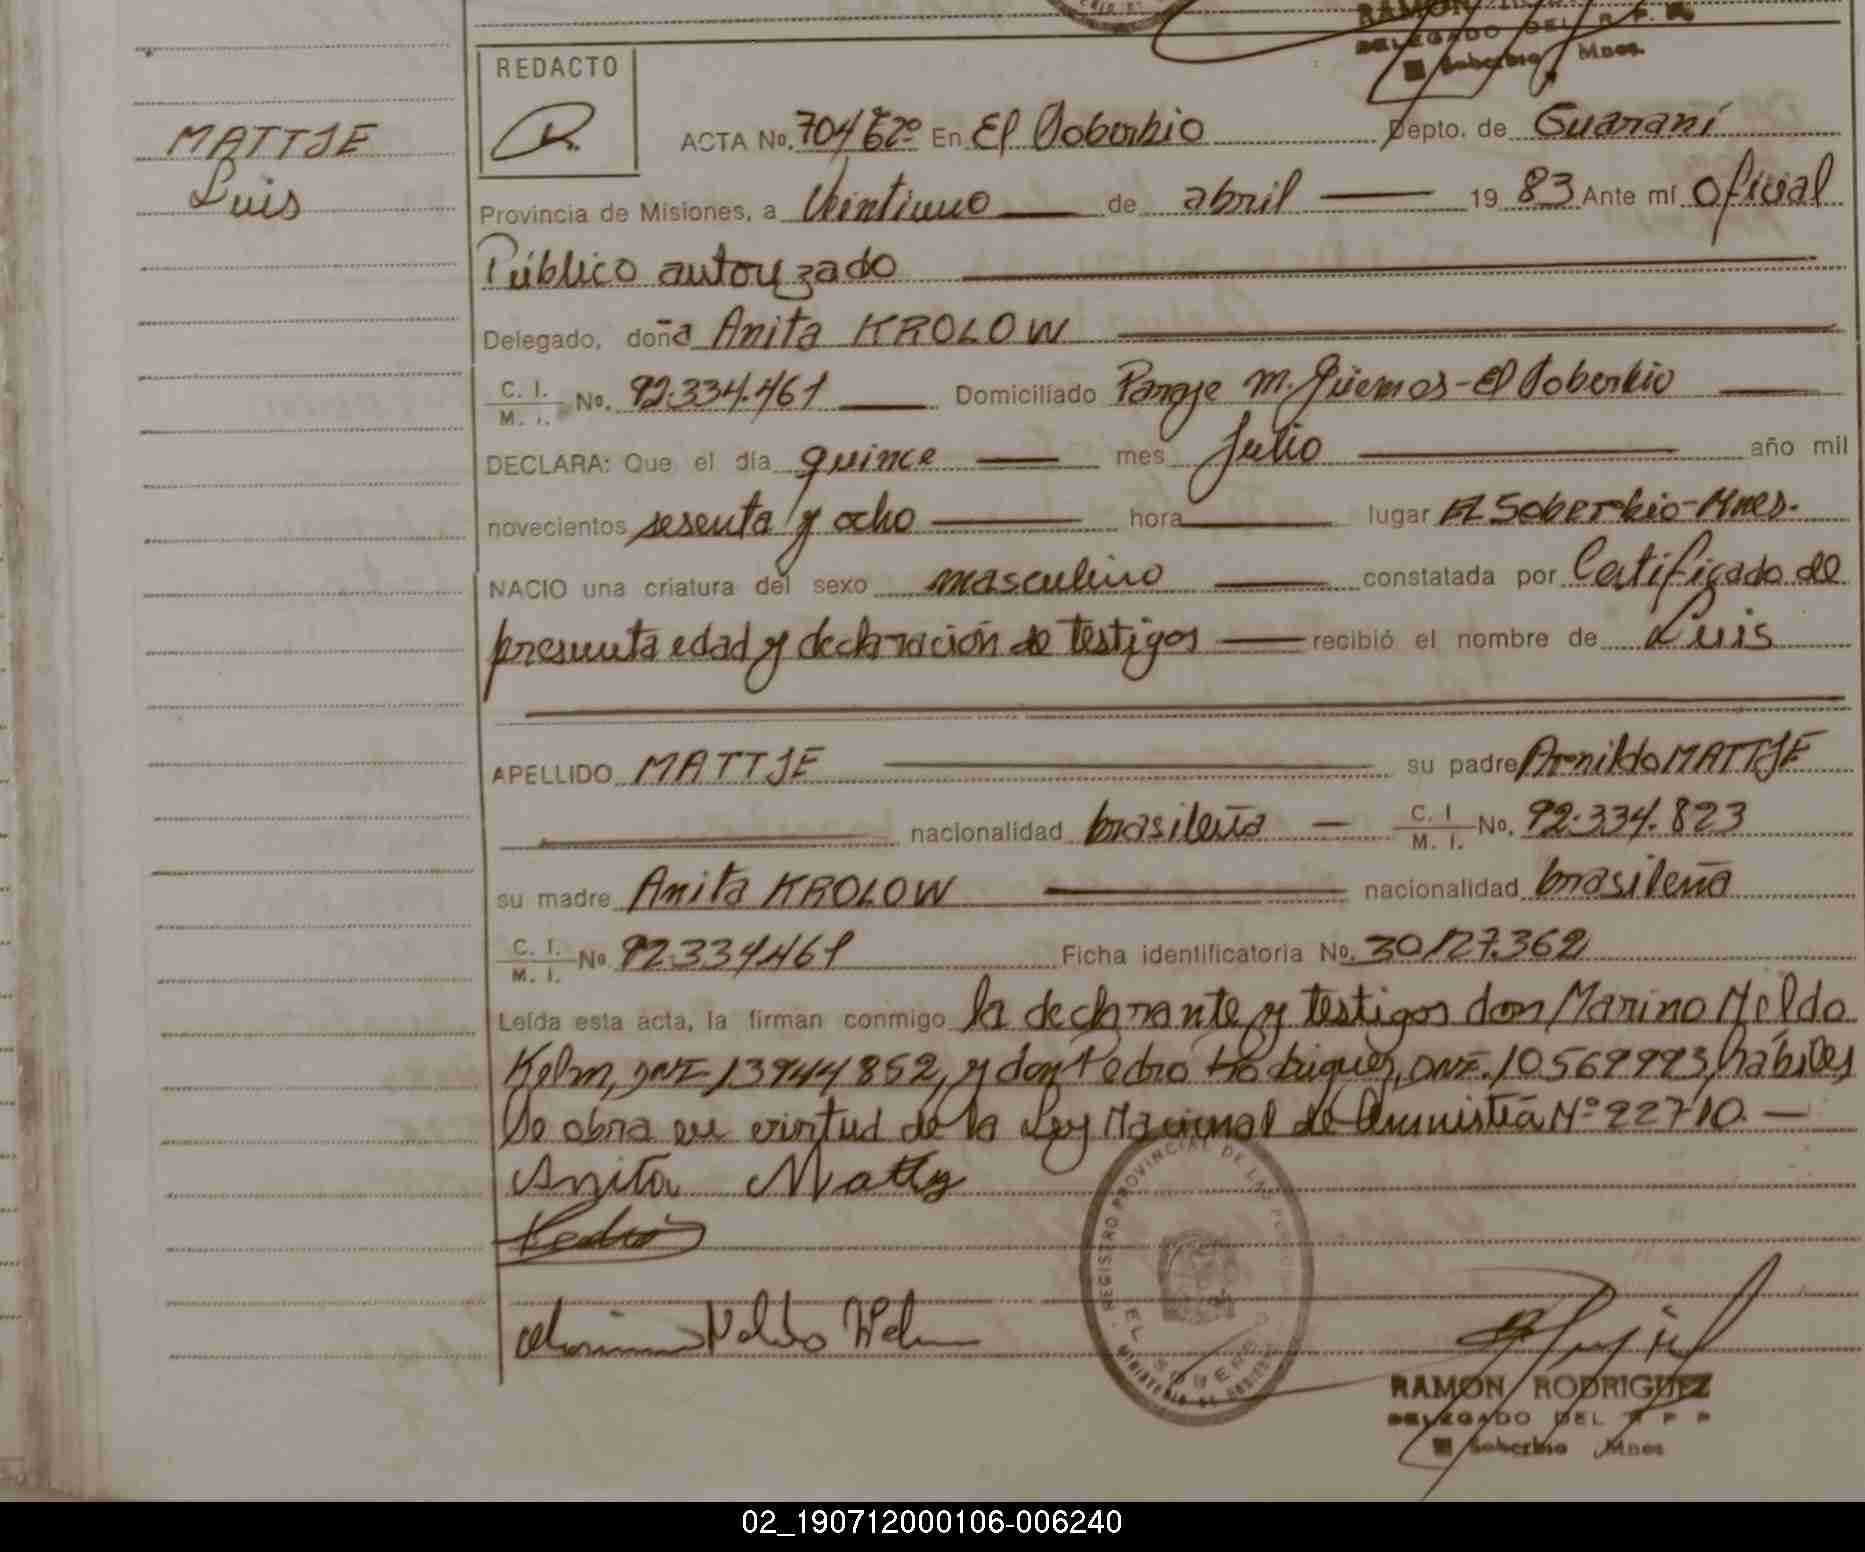 RAMON
DELEGADO DEL R. P. P.
El Soberbio Mnes
REDACTO
MATTJE
Luis
ACTA No. 704 Tº 2º En El Soberbio Depto. de Guaraní
Provincia de Misiones, a Veintiuno de abril 19 83 Ante mí Oficial
Público autorizado
Delegado, doña Anita KROLOW
C. I. M. I. No. 92.334.461 Domiciliado Paraje M. Güemes - El Soberbio
DECLARA: Que el día quince mes Julio año mil
novecientos sesenta y ocho hora lugar El Soberbio - Mnes.
NACIO una criatura del sexo masculino constatada por Certificado de
presunta edad y declaración de testigos recibió el nombre de Luis
APELLIDO MATTJE su padre Arnildo MATTJE
nacionalidad brasileña C. I M. I. No. 92.334.823
su madre Anita KROLOW nacionalidad brasileña
C. I. M. I. No 92.334.461 Ficha identificatoria No. 30.127.362
Leída esta acta, la firman conmigo la declarante y testigos don Marino Neldo
Kelm, DNI 13944852, y don Pedro Rodriguez, DNI. 10569993, hábiles
Se obra en virtud de la Ley Nacional de Amnistía Nº 22710.
Anita Matty
Pedro
Marino Neldo Kelm
REGISTRO PROVINCIAL DE LAS PERSONAS
EL SOBERBIO
MINISTERIO DE GOBIERNO
RAMON RODRIGUEZ
DELEGADO DEL R P P
El Soberbio Mnes
02_190712000106-006240